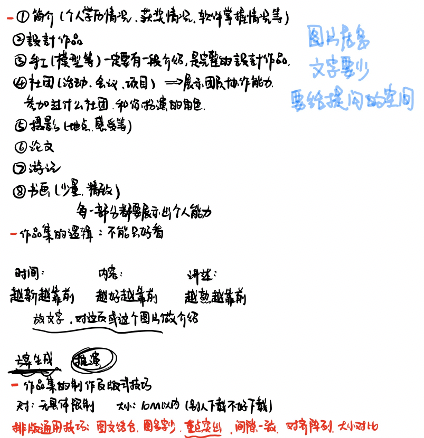 - ①简介(个人学历情况、获奖情况、软件掌握情况等)
②设计作品
③手工(模型等)一定要有一段介绍,是完整的设计作品.
④社团(活动、会议、项目) ⇒展示团队协作能力.
参加过什么社团.和你扮演的角色.
⑤摄影(地点.感受等)
⑥论文
⑦游记
⑧书画(少量、精致)
每一部分都要展示出个人能力
图片居多
文字要少
要给提问的空间
- 作品集的逻辑:不能只好看
时间: 内容: 讲述:
越新越靠前 越好越靠前 越熟越靠前
放文字,对这页或这个图片做介绍
- 作品集的制作及版式技巧
尺寸:无具体限制 大小:10M以内(别人下载不好下载)
排版通用技巧:图文结合.图多字少.重点突出.间隔一致.对齐阵列.大小对比